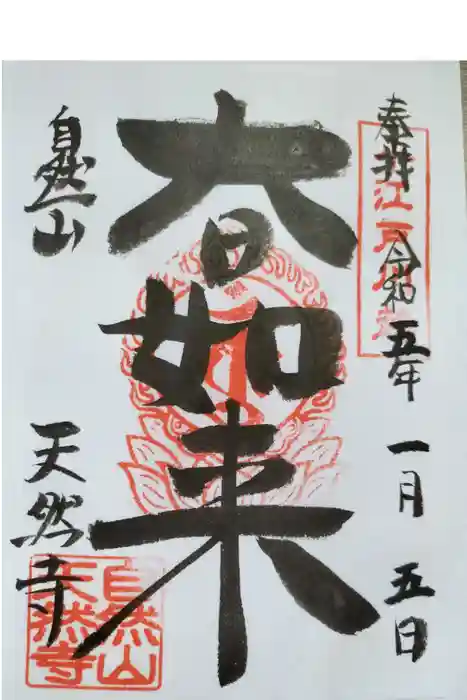 奉拝 令和五年 一月 五日
江戸
大日如来
自然山
天然寺
自然山
天然寺